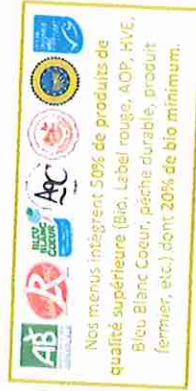 AB
BLEU
BLANC
COEUR
Nos menus intègrent 50% de produits de
qualité supérieure (Bio, Label rouge, AOP, HVE,
Bleu Blanc Coeur, pêche durable, produit
fermier, etc.) dont 20% de bio minimum.